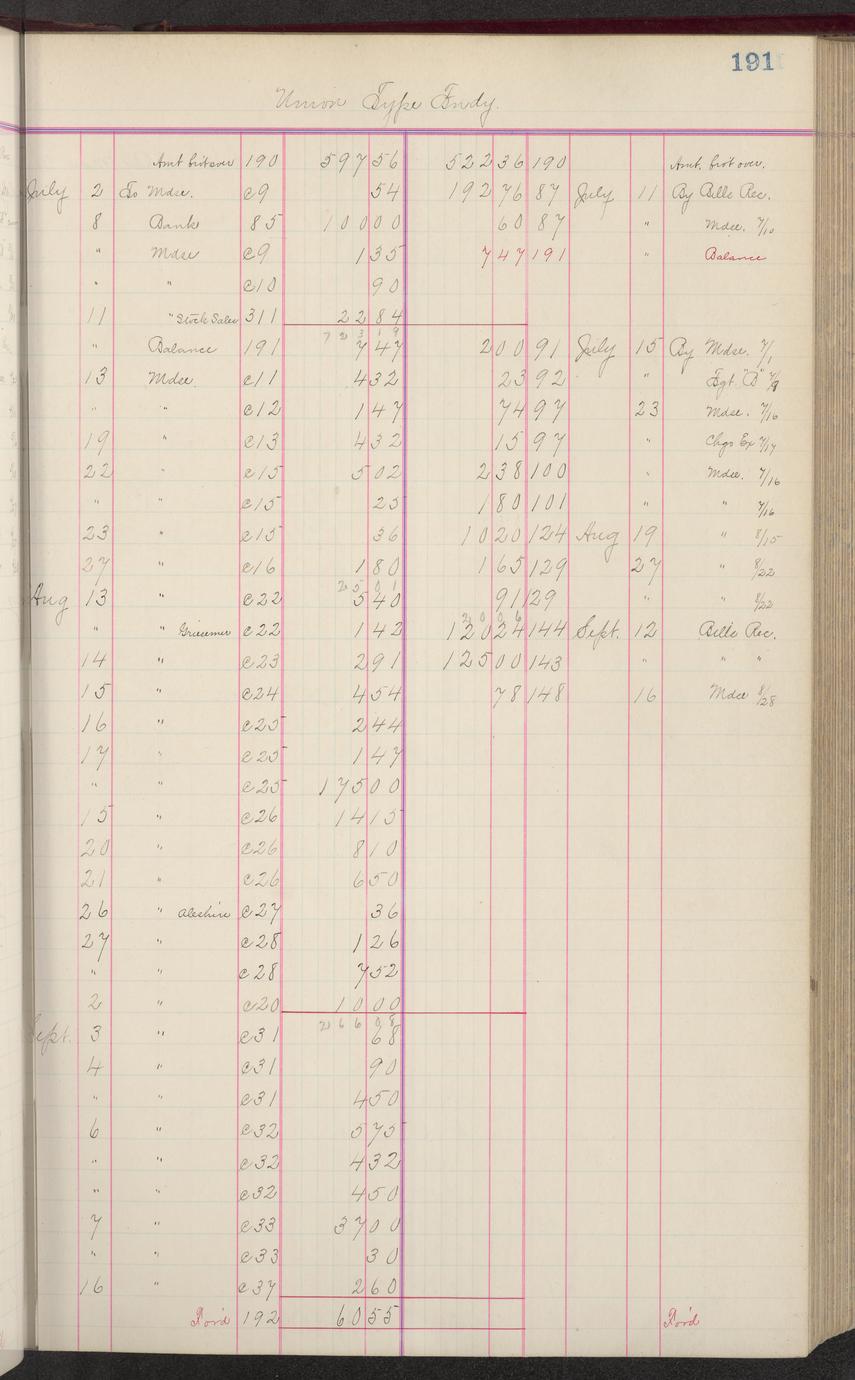 191
Union Type Fndy.
Amt brot over 190 597 56 522 36 190 Amt. brot over.
July 2 To Mdse. c9 54 192 76 87 July 11 By Bills Rec.
8 Bank 85 100 00 60 87 " Mdse. 7/10
" Mdse c9 1 35 7 47 191 " Balance
" " c10 90
11 " Stock Sales 311 22 84
7 2 3 1 9
" Balance 191 7 47 2 00 91 July 15 By Mdse. 7/1
13 Mdse. c11 4 32 23 92 " Fgt. "B" 7/9
" " c12 1 47 74 97 23 Mdse. 7/16
19 " c13 4 32 15 97 " Chgs Ex 7/17
22 " c15 5 02 2 38 100 " Mdse. 7/16
" " c15 25 1 80 101 " " 7/16
23 " c15 36 10 20 124 Aug 19 " 8/15
27 " c16 1 80 1 65 129 27 " 8/22
2 5 0 1
Aug 13 " c22 5 40 91 129 " " 8/22
2 0 0 6
" " Griesemer c22 1 42 120 24 144 Sept. 12 Bills Rec.
14 " c23 2 91 125 00 143 " " "
15 " c24 4 54 78 148 16 Mdse 8/28
16 " c25 2 44
17 " c25 1 47
" " c25 175 00
15 " c26 14 15
20 " c26 8 10
21 " c26 6 50
26 " Aleshire c27 36
27 " c28 1 26
" " c28 7 52
2 " c20 10 00
2 6 6 0 8
Sept. 3 " c31 68
4 " c31 90
" " c31 4 50
6 " c32 5 75
" " c32 4 32
" " c32 4 50
7 " c33 37 00
" " c33 30
16 " c37 2 60
For'd 192 60 55 For'd